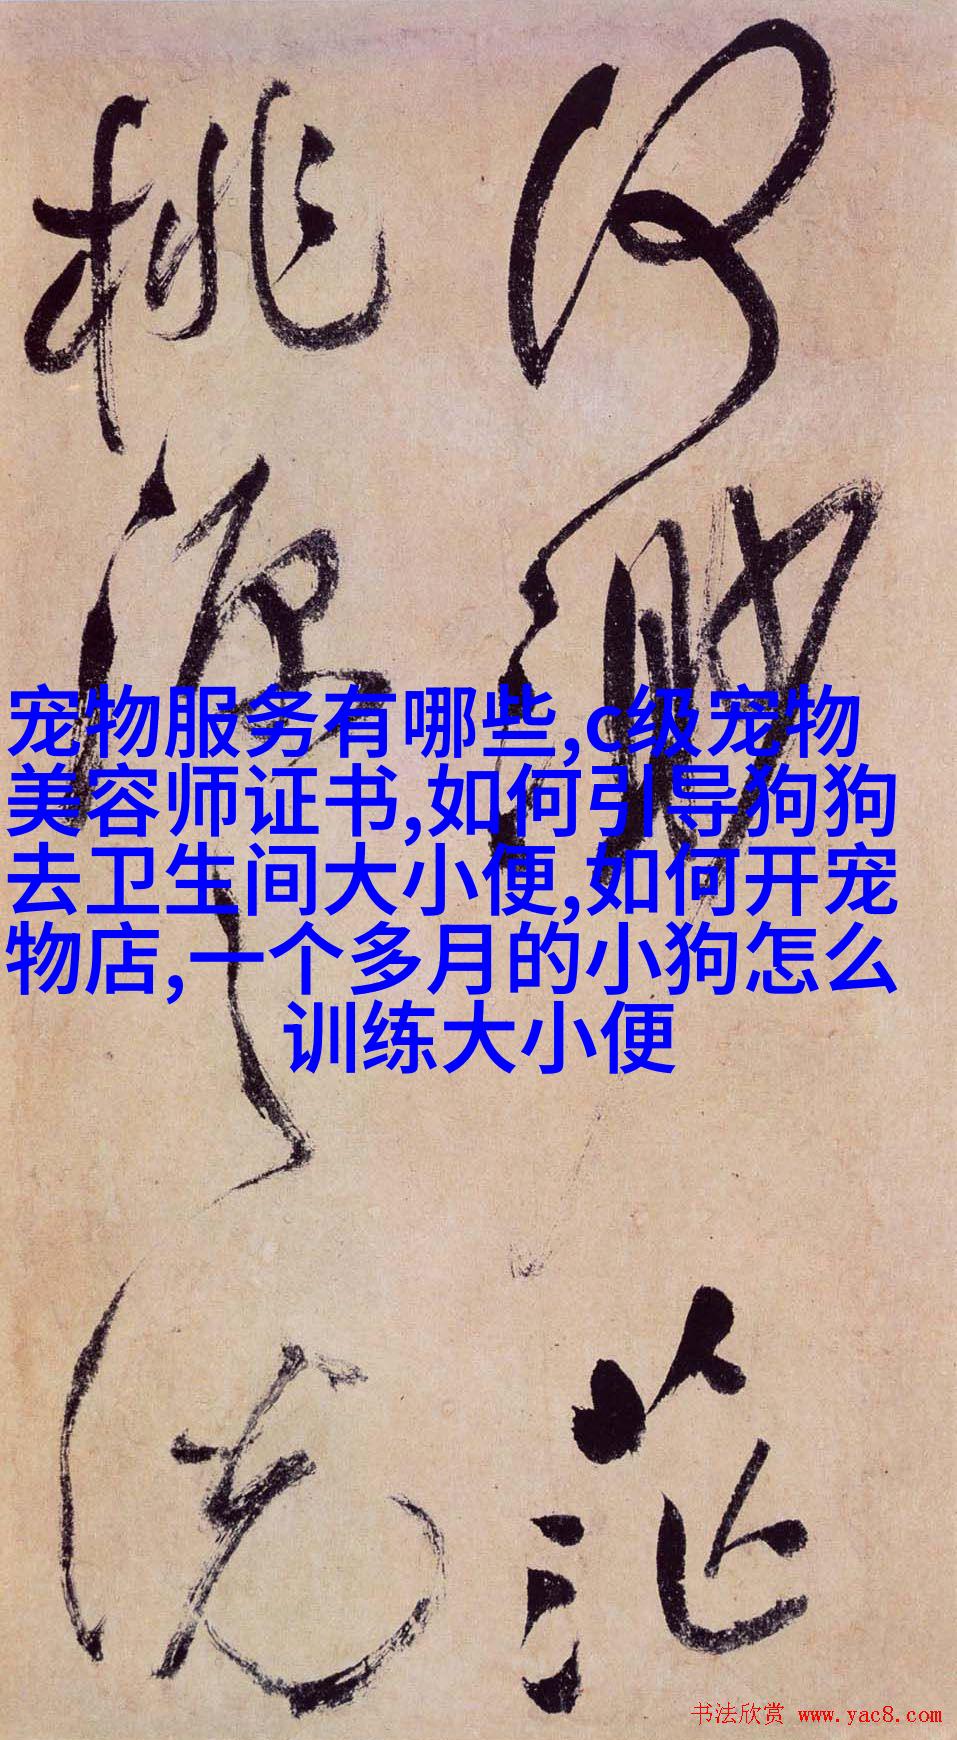 何渺茫
桃源之說
宠物服务有哪些,c级宠物
美容师证书,如何引导狗狗
去卫生间大小便,如何开宠
物店,一个多月的小狗怎么
训练大小便
书法欣赏 www.yac8.com